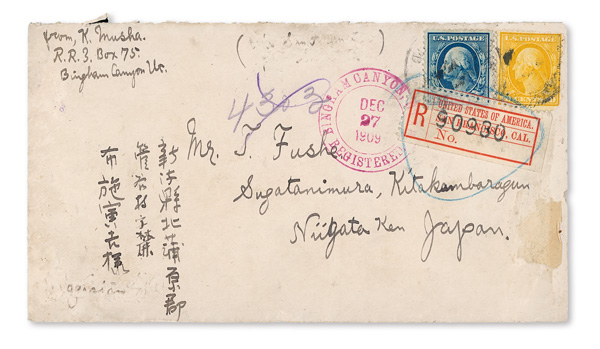 from, K. Musha.
R.R.3. Box 75.
Bingham Canyon Ut.
U.S. POSTAGE
U.S. POSTAGE
4303
BINGHAM CANYON,
DEC
27
1909
REGISTERED
UNITED STATES OF AMERICA.
SAN FRANCISCO, CAL.
R
No.
90980
Mr. T. Fuse
Sugatanimura, Kitakambaragun
Niigata Ken Japan.
新潟縣北蒲原郡
菅谷村字
布施寅吉様